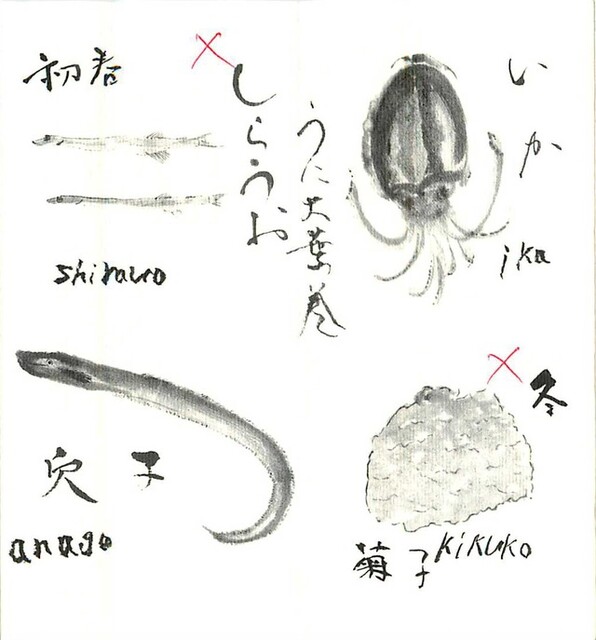 初春
しらうお
shirauo
うに大葉巻
いか
ika
穴子
anago
冬
菊子
kikuko